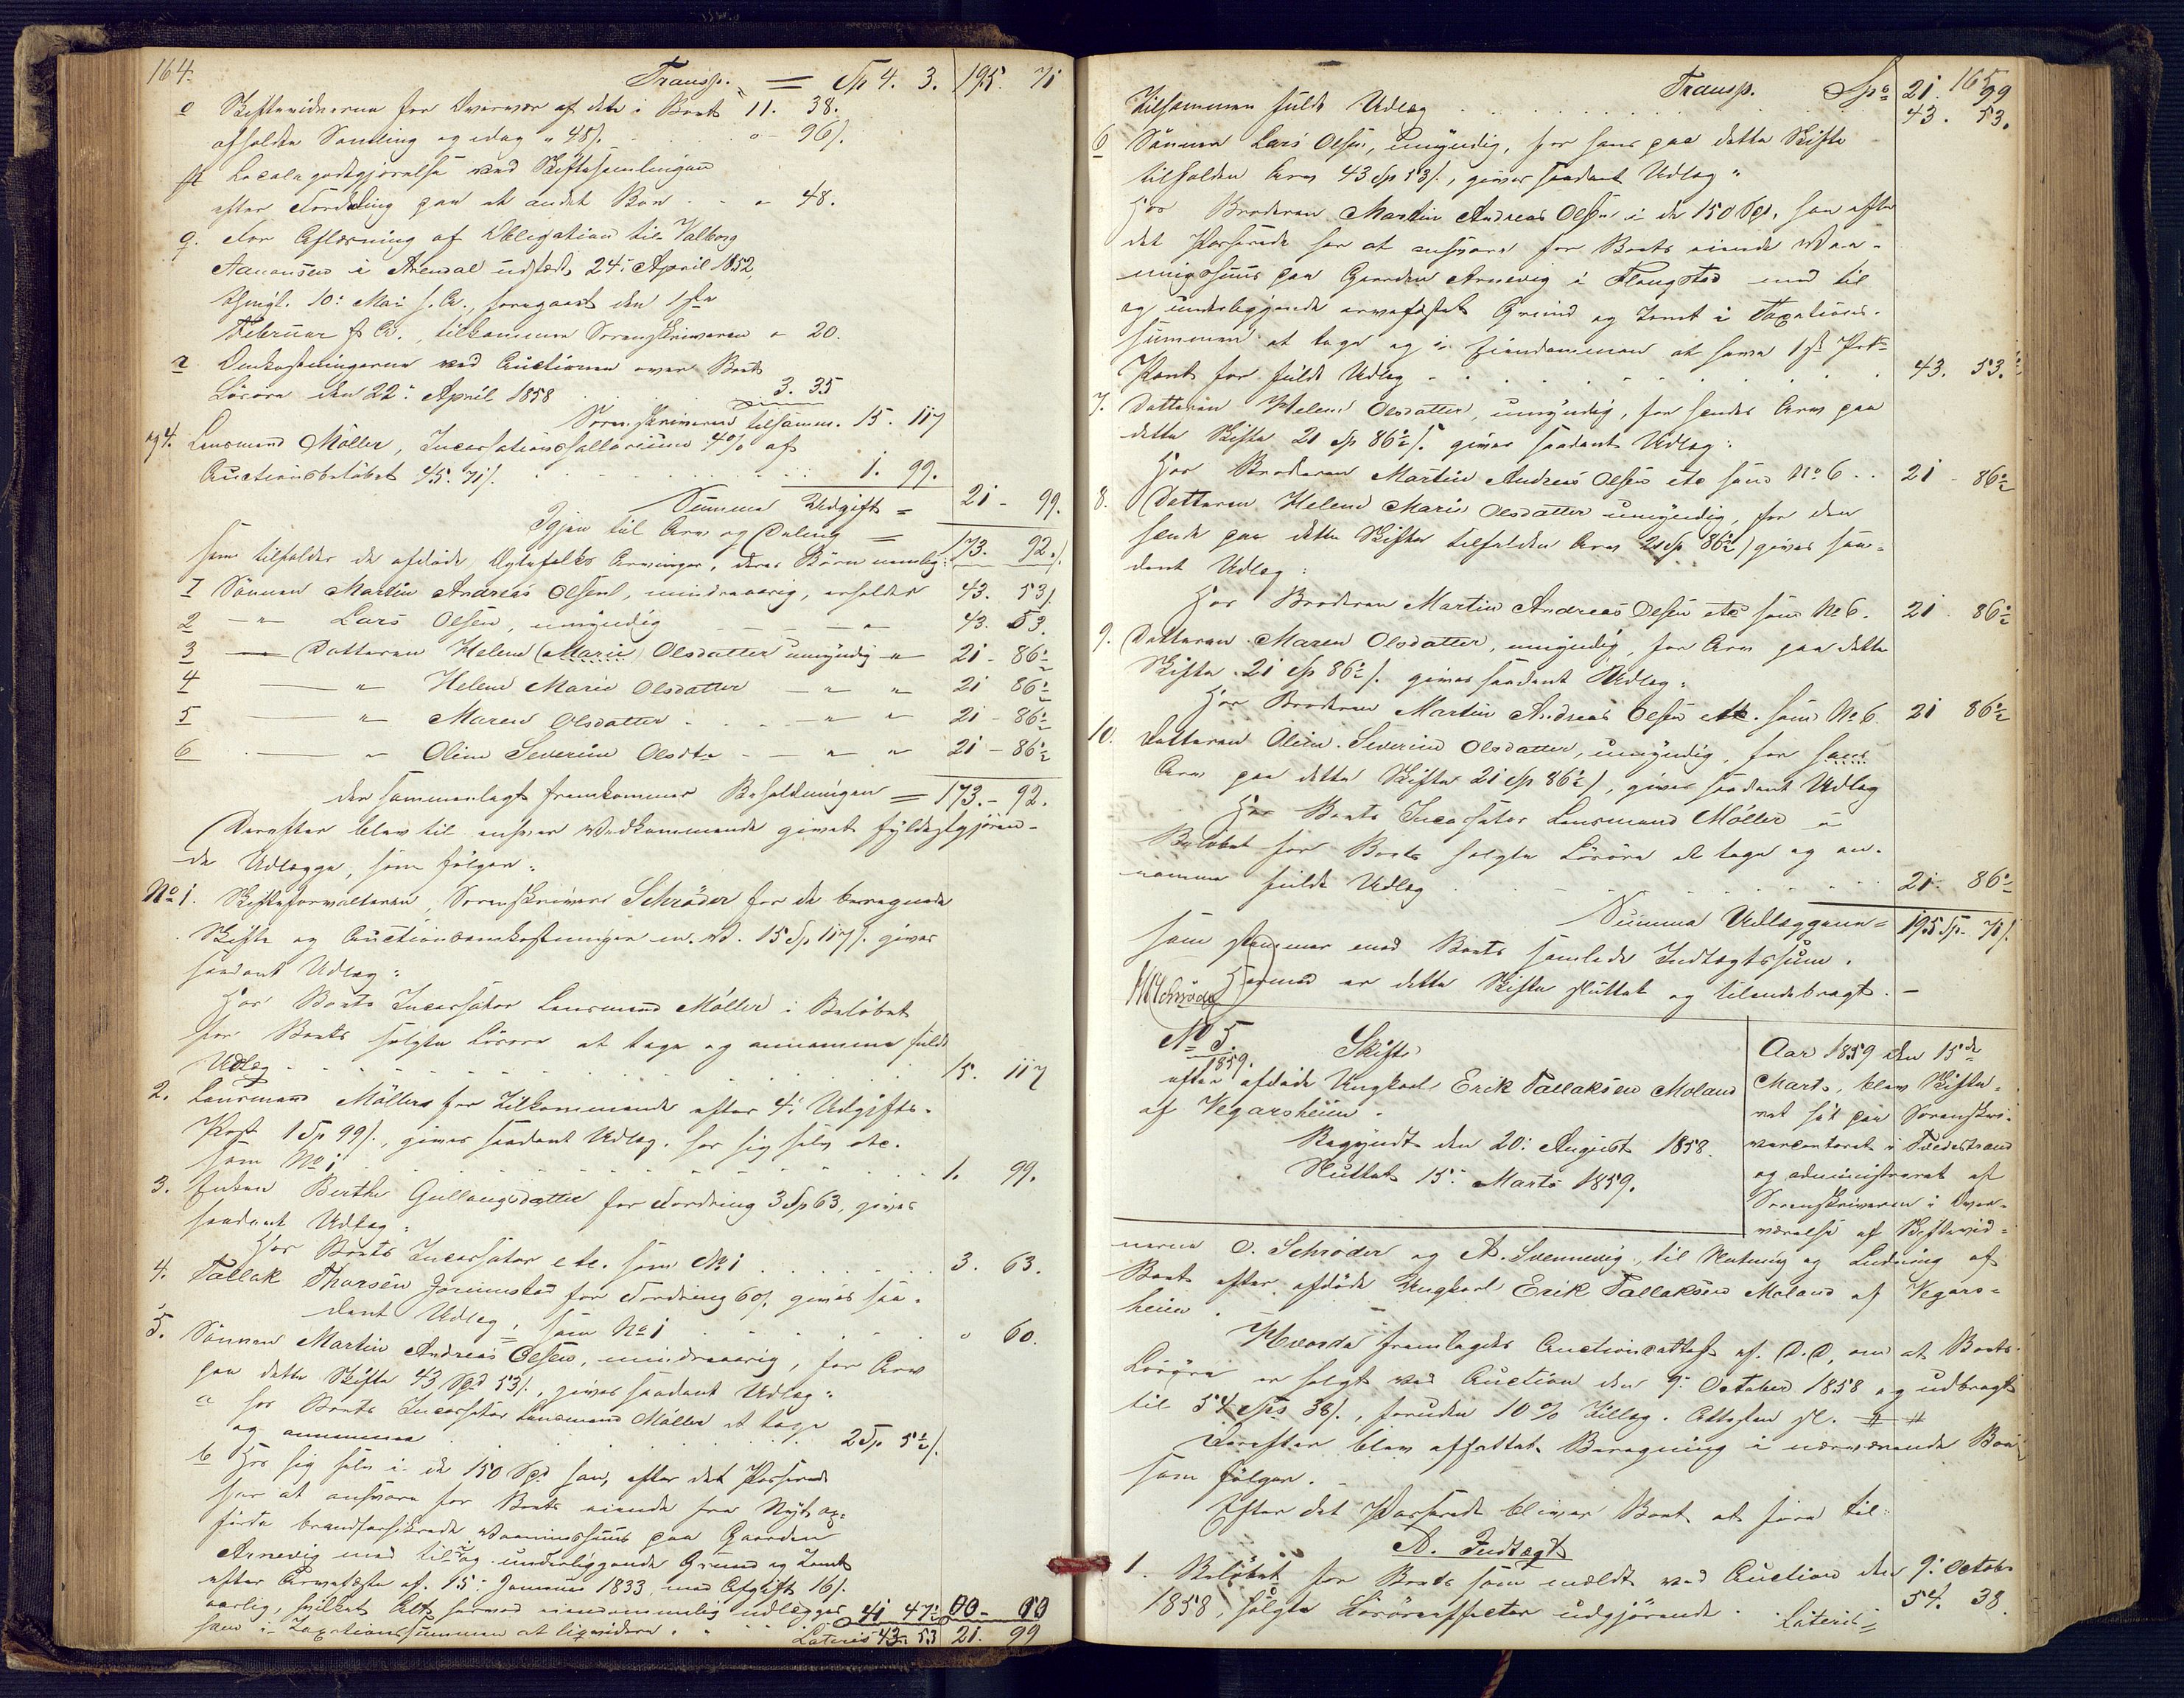 164.
Transp. = Sp 4. 3. 195. 71
o Skiftevidnerne for Overvær af dette i Boet 11. 38.
afholdte Samling og idag " 48/. " 96/.
p Locale godtgjørelse ved Skiftesamlingen
efter Fordeling paa et andet Bo " 48.
q. For Aflæsning af Obligation til Valborg
Aanonsen i Arendal udstedt 24: April 1852,
thingl. 10: Mai s. A., foregaaet den 1ste
Februar f. A., tilkommer Sorenskriveren " 20.
r Omkostningerne ved Auctionen over Boets
Løsøre den 22: April 1858 3. 35
Sorenskriveren tilsamm. 15. 117
og 4. Lensmand Møller, Incassationssallarium 4% af
Auctionsbeløbet 45. 71/. 1. 99.
Summa Udgift = 21 - 99.
Igjen til Arv og Deling = 173. 92./.
som tilfalder de afdøde Ægtefolks Arvinger, deres Børn nemlig:
1 Sønnen Martin Andreas Olsen, mindreaarig, erholder 43. 53/.
2 — " Lars Olsen, umyndig — " 43. 53.
3 — Datteren Helene (Marie) Olsdatter umyndig " 21 - 86½
4 — " Helene Marie Olsdatter — " " 21 86½
5 — " Maren Olsdatter — " " 21 - 86½
6 — " Oline Severine Olsdtr — " " 21 - 86½
der sammenlagt fremkommer Beholdningen = 173. - 92.
Derefter blev til enhver Vedkommende givet fyldestgjøren-
de Udlægge, som følger:
No 1. Skifteforvalteren, Sorenskriver Schrøder for de beregnede
Skifte og Auctionsomkostninger 15 Sp 117/. gives
saadant Udlæg:
Hos Boets Incassator Lensmand Møller i Beløbet
for Boets solgte Løsøre at tage og annamme fuldt
Udlæg 15. 117
2. Lensmand Møller for Tilkommende efter 4: Udgifts-
Post 1 Sp 99/., gives saadant Udlæg. hos sig selv etc.
som No 1. 1. 99.
3. Enken Berthe Gullaugsdatter for Fordring 3 Sp 63, gives
saadant Udlæg:
Hos Boets Incassator etc. som No 1 3. 63.
4. Tallak Thorsen for Fordring 60/. gives saa-
dant Udlæg, som No 1 " 60.
5. Sønnen Martin Andreas Olsen, mindreaarig, for Arv
paa dette Skifte 43 Spd 53/., gives saadant Udlæg:
a hos Boets Incassator Lensmand Møller at tage
og annamme 2 Sp 5½/.
b Hos sig selv i de 150 Spd han, efter det Passerede
har at ansvare for Boets eiende fra
brandforsikrede Vaaningshuus paa Gaarden
Arnevig med til og underliggende Grund og Tomt
efter Arvefæste af 15: Januar 1833, med Afgift 16/.
aarlig, hvilket Alt hermed eiendommelig udlægges 41 47½ 00 - 00
ham i Taxationssummen at liqvidere. Lateris 43. 53 21. 99
165
Transp. Spd 21. 99
tilsammen fuldt Udlæg 43. 53.
6 Sønnen Lars Olsen, umyndig, for hans paa dette Skifte
tilfaldne Arv 43 Sp 53/., gives saadant Udlæg:
Hos Broderen Martin Andreas Olsen i de 150 Spd, han efter
det Passerede har at ansvare for Boets eiende Vaa-
ningshuus paa Gaarden Arnevig i Flougstad med til
og underliggende arvefæstet Grund og Tomt i Taxations-
summen at tage og i Eiendommen at have 1ste Pri-
Pant for fuldt Udlæg 43. 53.
7. Datteren Helene Olsdatter, umyndig, for hendes Arv paa
dette Skifte 21 Sp 86½/. gives saadant Udlæg:
Hos Broderen Martin Andreas Olsen etc som No 6 21 - 86½
8. Datteren Helene Marie Olsdatter umyndig, for den
hende paa dette Skifte tilfaldne Arv 21 Sp 86½/. gives saa-
dant Udlæg:
Hos Broderen Martin Andreas Olsen etc som No 6. 21 86½
9. Datteren Maren Olsdatter, umyndig, for Arv paa dette
Skifte 21 Sp 86½/. gives saadant Udlæg:
Hos Broderen Martin Andreas Olsen etc. som No 6. 21 86½
10. Datteren Oline Severine Olsdatter, umyndig, for hans
Arv paa dette Skifte 21 Sp 86½/., gives saadant Udlæg
Hos Boets Incassator Lensmand Møller i
Beløbet for Boets solgte Løsøre at tage og an-
namme fuldt Udlæg 21. 86½
Summa Udlæggene = 195 Sp 71/.
som stemmer med Boets samlede Indtægtssum.
Hermed er dette Skifte sluttet og tilendebragt. —
Schrøder
No 5.
1859.
Skifte
efter afdøde Ungkarl Erik Tallaksen Moland
af Vegarsheien.
Begyndt den 20: August 1858.
Sluttet 15: Marts 1859.
Aar 1859 den 15de
Marts, blev Skifte-
ret sat paa Sorenskri-
vercontoret i Tvedestrand
og administreret af
Sorenskriveren i Over-
værelse af Skiftevid-
nerne O. Schrøder og A. Svennevig, til Slutning og Ludning af
Boet efter afdøde Ungkarl Erik Tallaksen Moland af Vegars-
heien.
Hvorda fremlagdes Auctionsattest af D.D, om at Boets
Løsøre er solgt ved Auction den 9: October 1858 og udbragt
til 54 Sp 38/., foruden 10% Tillæg. Attesten sl. # #
Derefter blev affattet Beregning i nærværende Bo
som følger.
Efter det Passerede bliver Boet at føre til:
A. Indtægt
1. Beløbet for Boets som meldt ved Auction den 9: October
1858, solgte Løsøreeffecter udgjørende 54. 38.
Lateris =